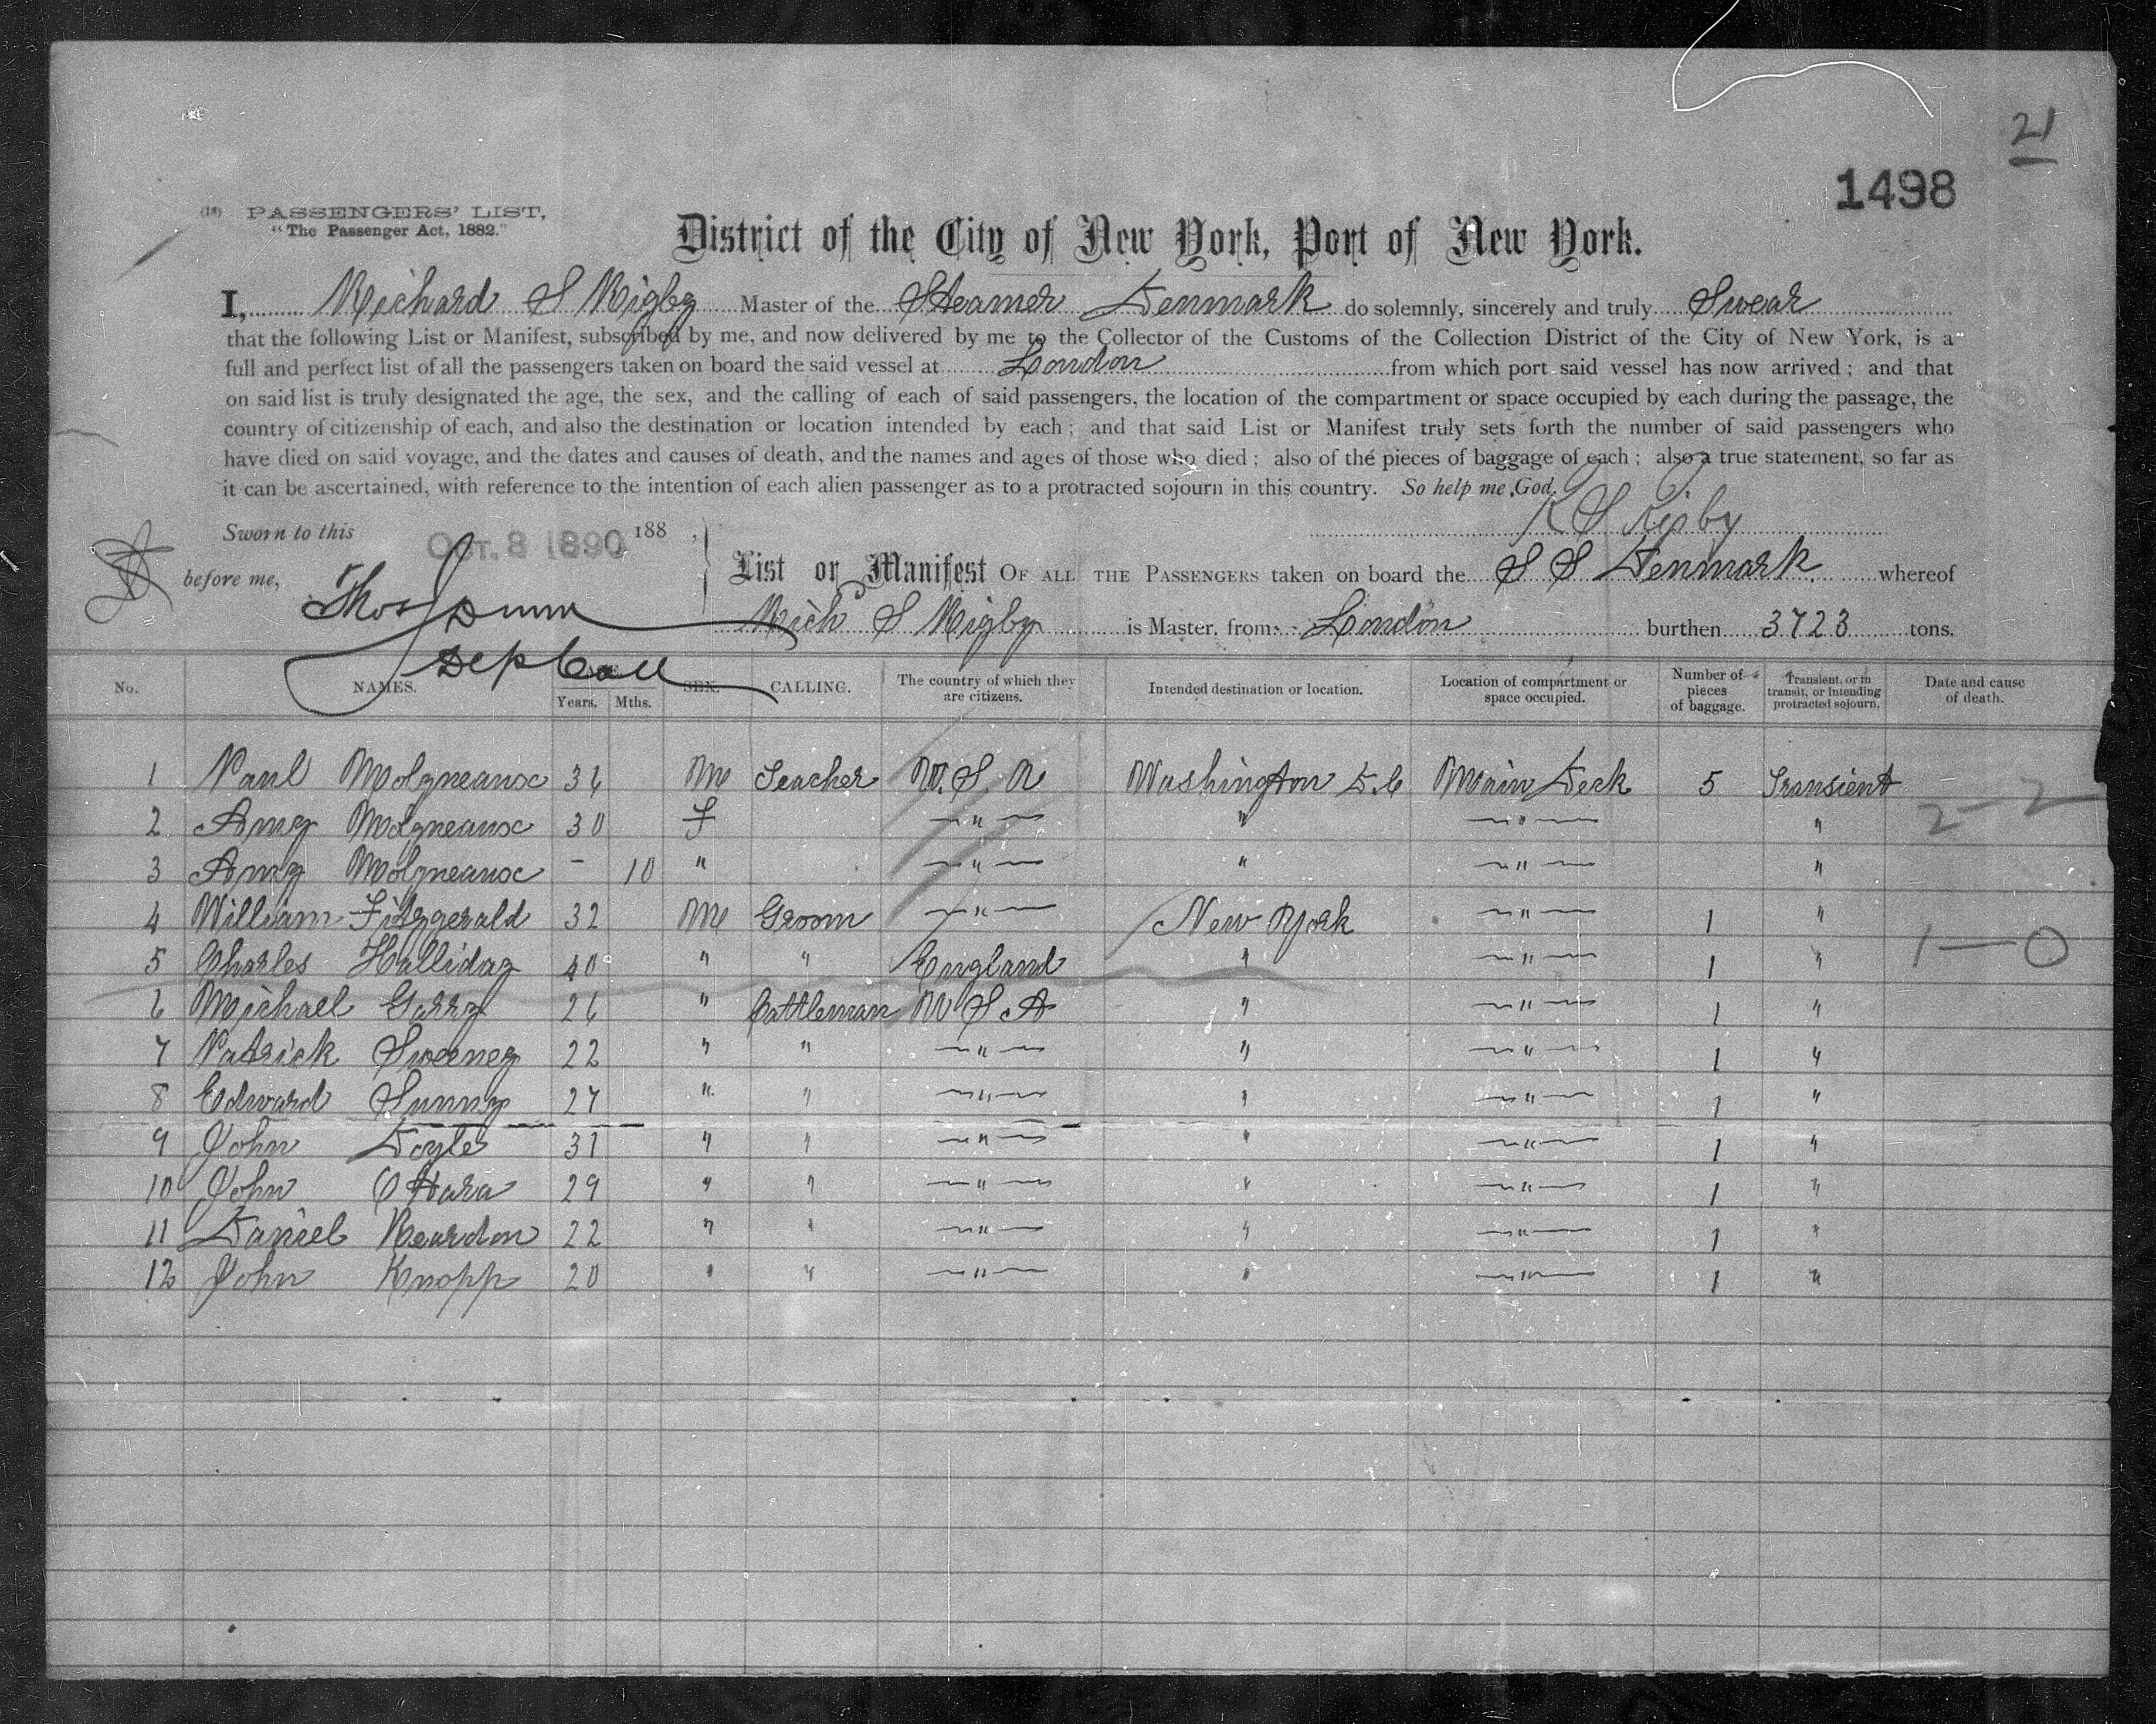 21
1498
(18) PASSENGERS' LIST,
"The Passenger Act, 1882."
District of the City of New York, Port of New York.
I, Richard S Rigby Master of the Steamer Denmark do solemnly, sincerely and truly Swear
that the following List or Manifest, subscribed by me, and now delivered by me to the Collector of the Customs of the Collection District of the City of New York, is a
full and perfect list of all the passengers taken on board the said vessel at London from which port said vessel has now arrived; and that
on said list is truly designated the age, the sex, and the calling of each of said passengers, the location of the compartment or space occupied by each during the passage, the
country of citizenship of each, and also the destination or location intended by each; and that said List or Manifest truly sets forth the number of said passengers who
have died on said voyage, and the dates and causes of death, and the names and ages of those who died; also of the pieces of baggage of each; also a true statement, so far as
it can be ascertained, with reference to the intention of each alien passenger as to a protracted sojourn in this country. So help me God.
R S Rigby
Sworn to this OCT. 8 1890 188 ,
before me, Thos Dunn
Dep Coll
List or Manifest OF ALL THE PASSENGERS taken on board the S S Denmark whereof
Rich S Rigby is Master, from London burthen 3723 tons.
No. NAMES. AGE Years. Mths. SEX. CALLING. The country of which they are citizens. Intended destination or location. Location of compartment or space occupied. Number of pieces of baggage. Transient, or in transit, or intending protracted sojourn. Date and cause of death.
1 Paul Molyneaux 36 M Teacher U.S.A Washington D.C Main Deck 5 Transient
2 Amy Molyneaux 30 F " " " " 2-2
3 Amy Molyneaux - 10 " " " " "
4 William Fitzgerald 32 M Groom " New York " 1 "
5 Charles Halliday 40 " " England " " 1 " 1-0
6 Michael Garry 26 " Cattleman U S A " " 1 "
7 Patrick Sweeney 22 " " " " " 1 "
8 Edward Sunny 27 " " " " " 1 "
9 John Doyle 31 " " " " " 1 "
10 John O'Hara 29 " " " " " 1 "
11 Daniel Reardon 22 " " " " " 1 "
12 John Knopp 20 " " " " " 1 "